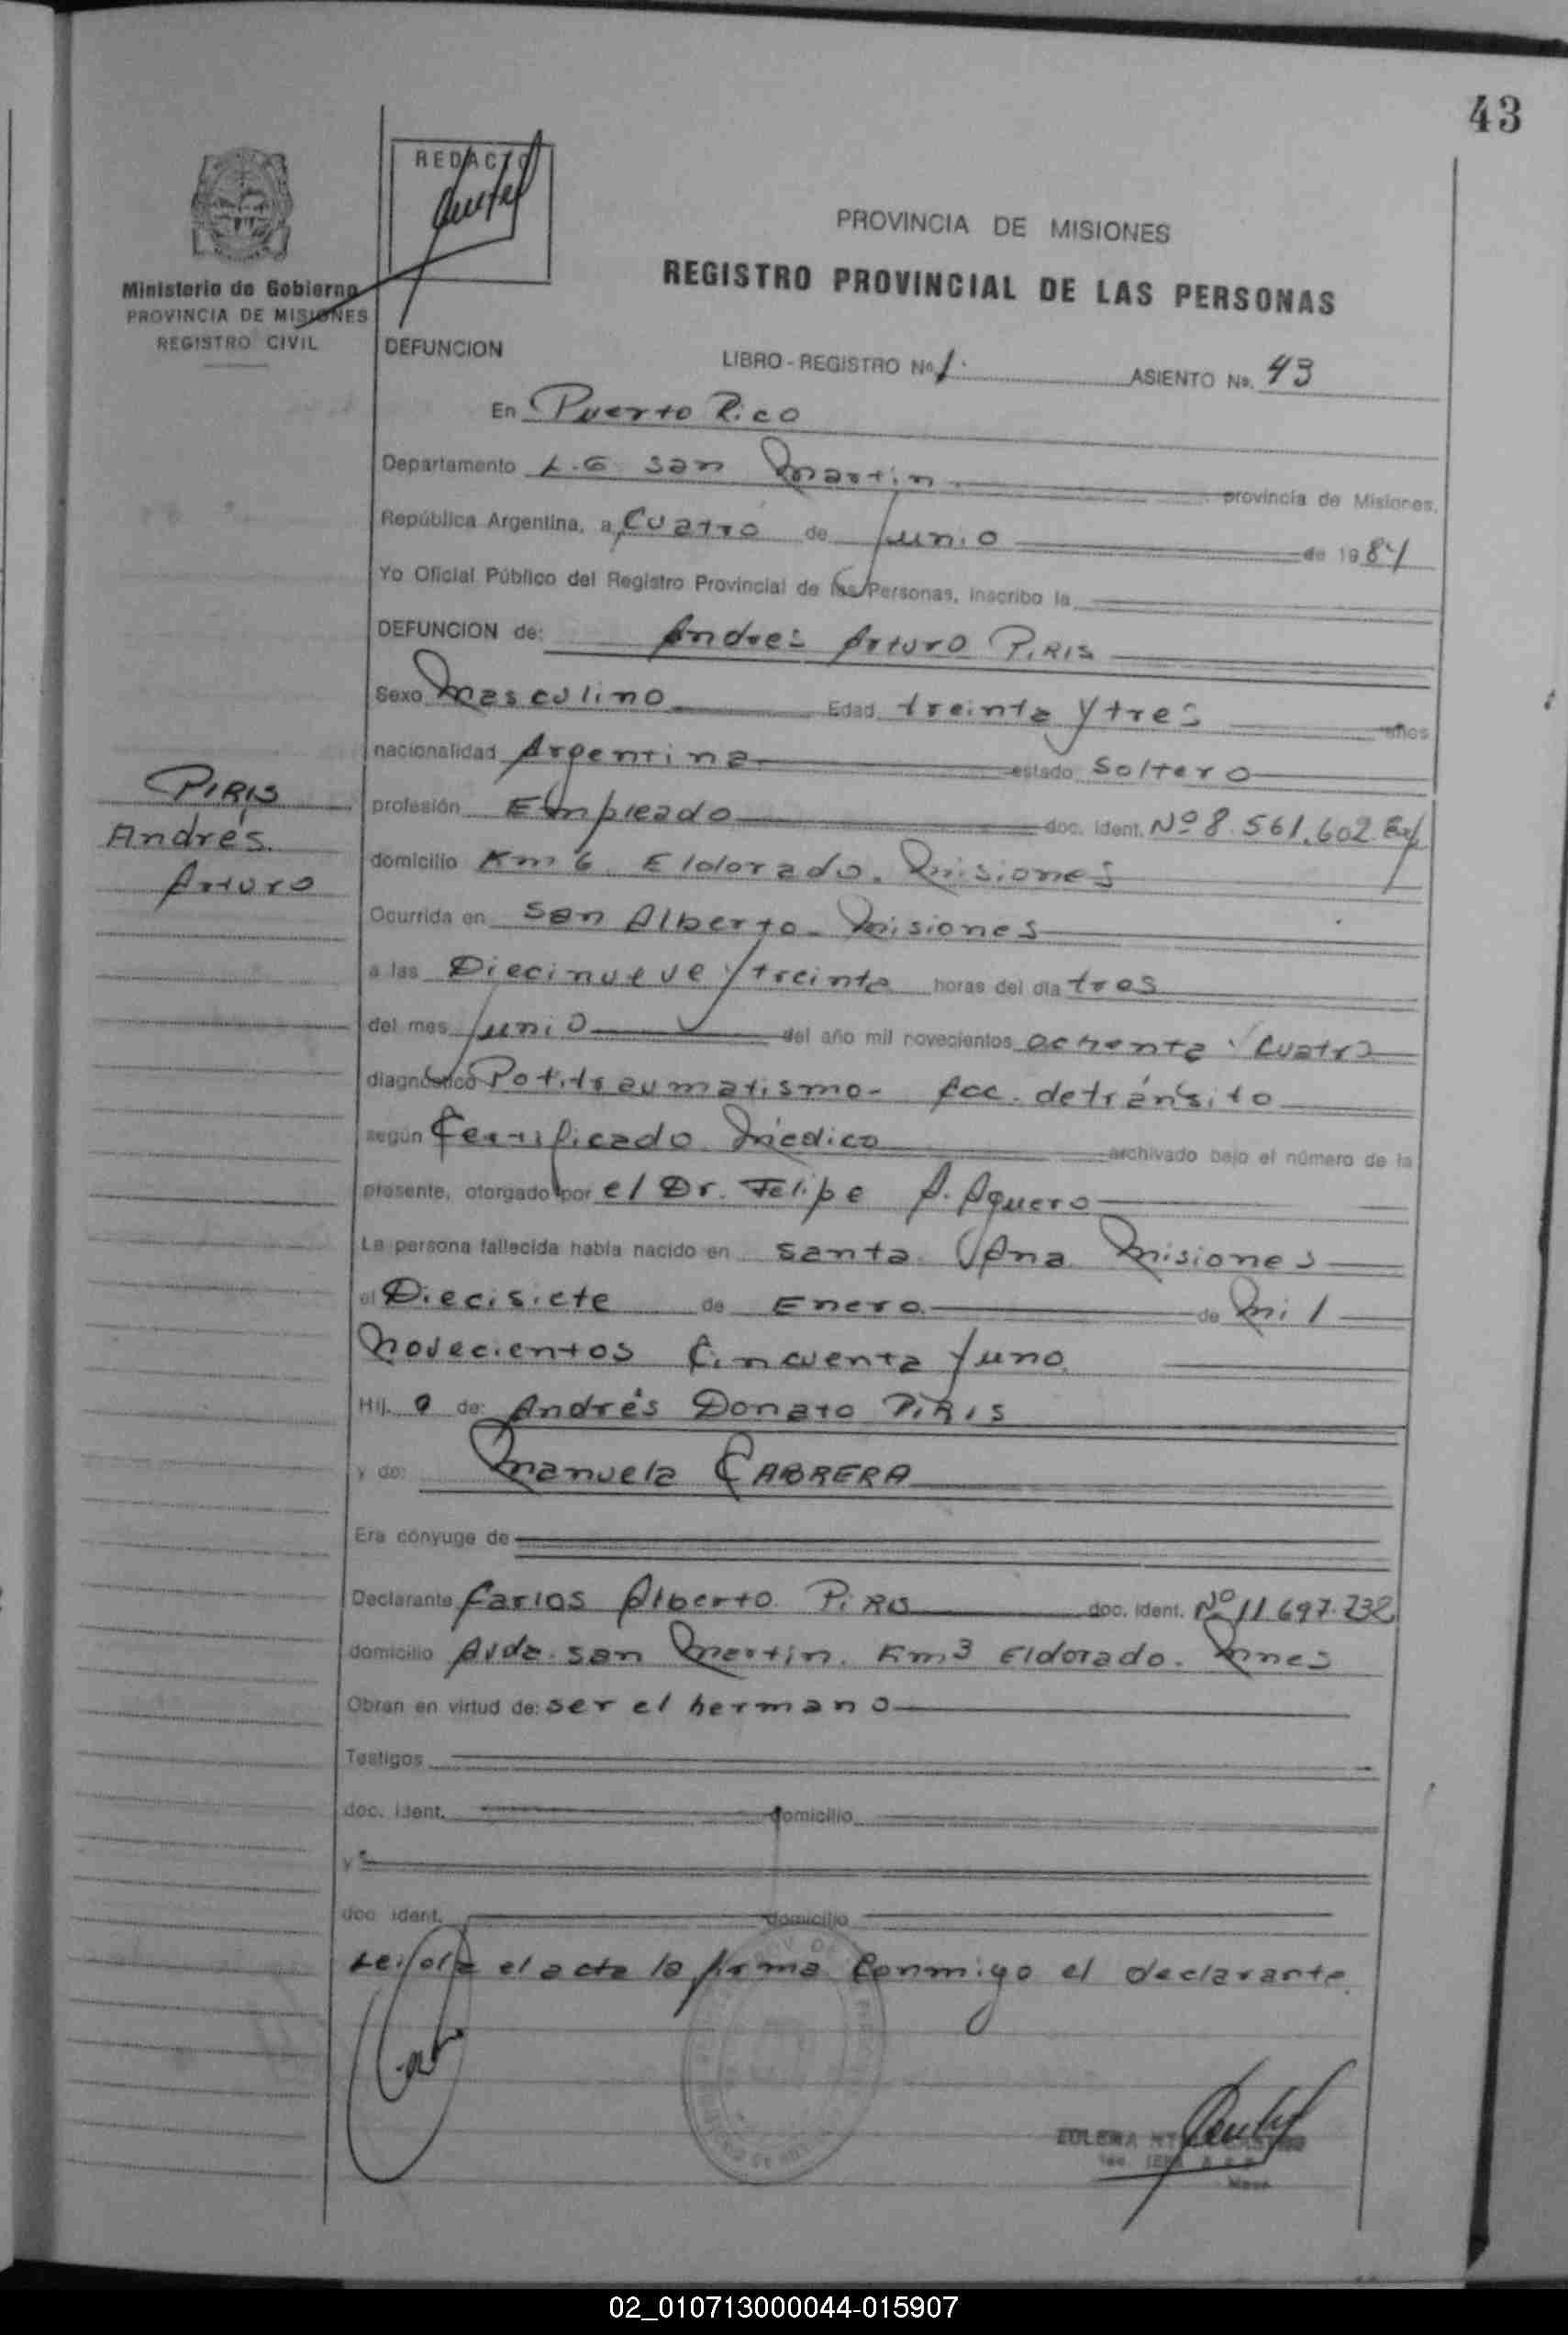 43
REDACTO
PROVINCIA DE MISIONES
REGISTRO PROVINCIAL DE LAS PERSONAS
Ministerio de Gobierno
PROVINCIA DE MISIONES
REGISTRO CIVIL
DEFUNCION
LIBRO - REGISTRO No. 1. ASIENTO No. 43
En Puerto Rico
Departamento L.G. San Martin provincia de Misiones,
República Argentina, a Cuatro de Junio de 1984
Yo Oficial Público del Registro Provincial de las Personas, inscribo la
DEFUNCION de: Andres Arturo PIRIS
Sexo Masculino Edad treinta y tres años
nacionalidad Argentina estado Soltero
PIRIS
Andrés
Arturo
profesión Empleado doc. ident. Nº 8.561.602
domicilio Km 6 Eldorado. Misiones
Ocurrida en San Alberto - Misiones
a las Diecinueve y treinta horas del día tres
del mes Junio del año mil novecientos ochenta y cuatro
diagnóstico Politraumatismo - Acc. de tránsito
según Certificado Médico archivado bajo el número de la
presente, otorgado por el Dr. Felipe A. Aguero
La persona fallecida había nacido en Santa Ana Misiones
el Diecisiete de Enero de Mil
Novecientos Cincuenta y uno
Hij. o de: Andrés Donato PIRIS
y de: Manuela CABRERA
Era cónyuge de
Declarante Carlos Alberto PIRIS doc. ident. Nº 11.697.732
domicilio Avda. San Martin. Km 3 Eldorado. Mnes
Obran en virtud de: ser el hermano
Testigos
doc. ident. domicilio
y
doc. ident. domicilio
Leida el acta la firma conmigo el declarante
ZULEMA
02_010713000044-015907